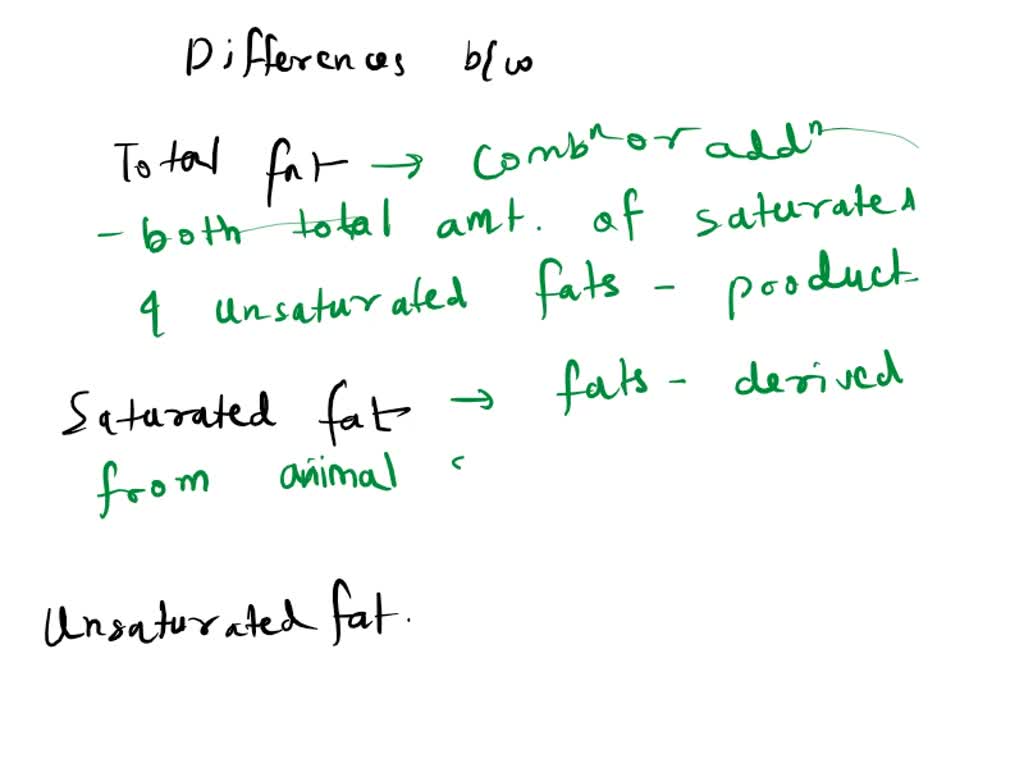 Differences b/w
Total fat → combⁿ or addⁿ
- both total amt. of saturated
& unsaturated fats - product
Saturated fat → fats - derived
from animal
Unsaturated fat.